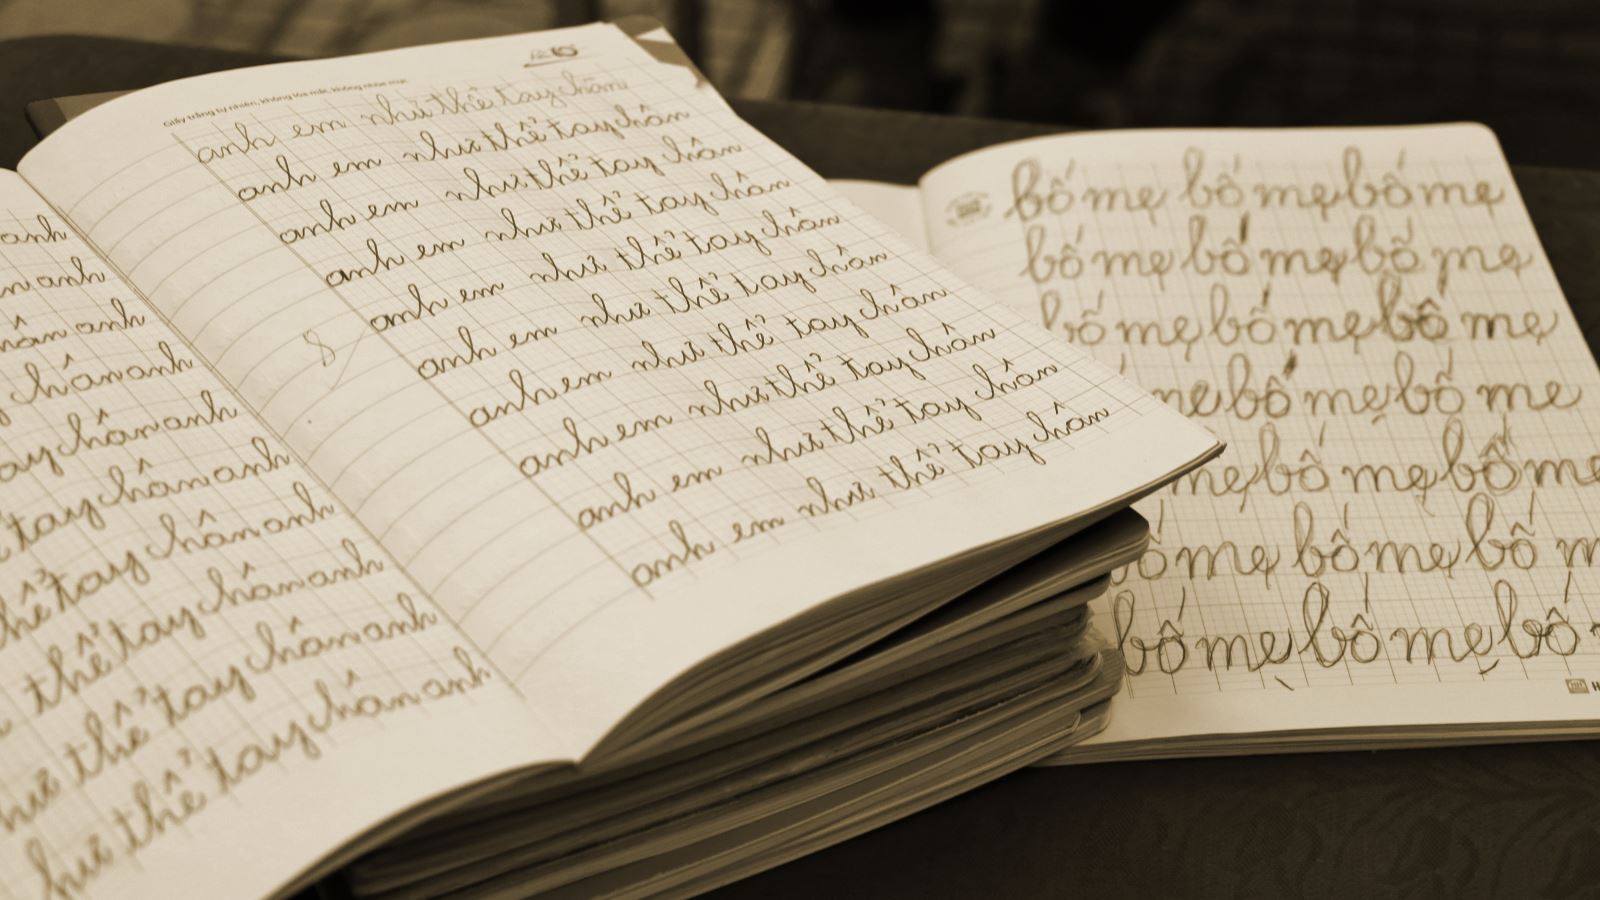 anh
n anh
hân anh
chân anh
ay chân anh
tay chân anh
thể tay chân anh
thể tay chân anh
hư thể tay chân anh
hư thể tay chân anh
Giấy trắng tự nhiên, không lóa mắt, không nhòe mực
anh em như thể tay chân
anh em như thể tay chân
anh em như thể tay chân
anh em như thể tay chân
anh em như thể tay chân
8
anh em như thể tay chân
anh em như thể tay chân
anh em như thể tay chân
anh em như thể tay chân
anh em như thể tay chân
bố mẹ bố mẹ bố mẹ
bố mẹ bố mẹ bố mẹ
bố mẹ bố mẹ bố mẹ
mẹ bố mẹ bố mẹ
mẹ bố mẹ bố mẹ
bố mẹ bố mẹ bố m
bố mẹ bố mẹ bố